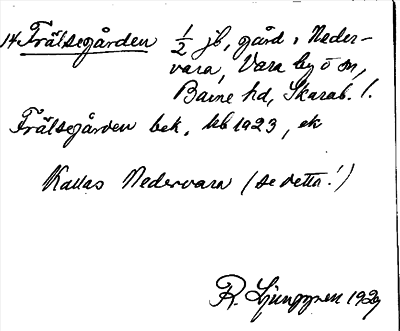 14 Frälsegården 1/2 jb, gård i Neder-
vara, Vara by o sn,
Barne hd, Skarab. l.
Frälsegården bek. Jrb 1923, ek
Kallas Nedervara (se detta!)
R. Ljunggren 1929